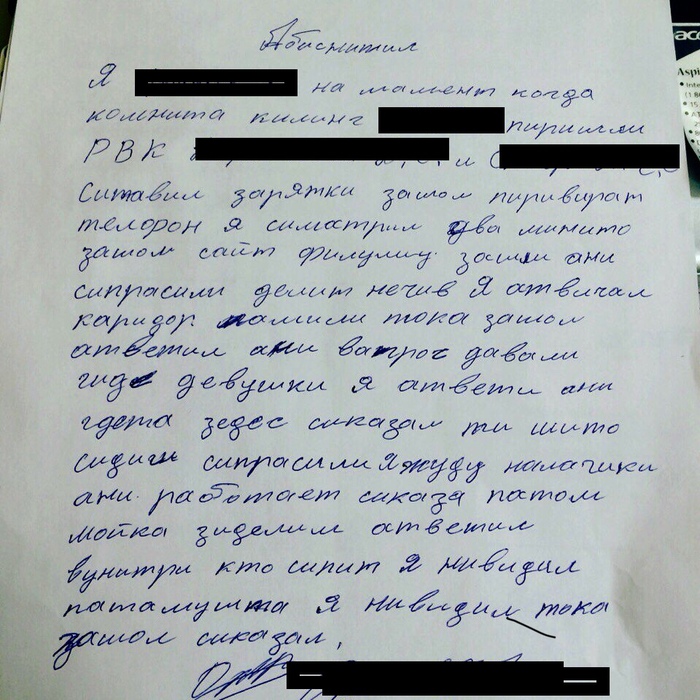 Абиснитил
Я на мамент когда
комнита килинг пиришли
РВК и
ситавил зарятки зашол пиривират
телорон я симатрил два минито
зашол сайт филулиц зашли ани
сипрасили делит нечив Я атвичал
каридор памили тока зашол
атветил ани вапрос давали
гиде девушки я атвети ани
гдета зедес сиказал ти шито
сидиги сипрасили Я жуду налачики
ани работает сиказа патом
мойка зиделим атветил
вунитри кто сипит Я нивидил
патамушта Я нивидил тока
зашол сиказал,
ace
Aspi